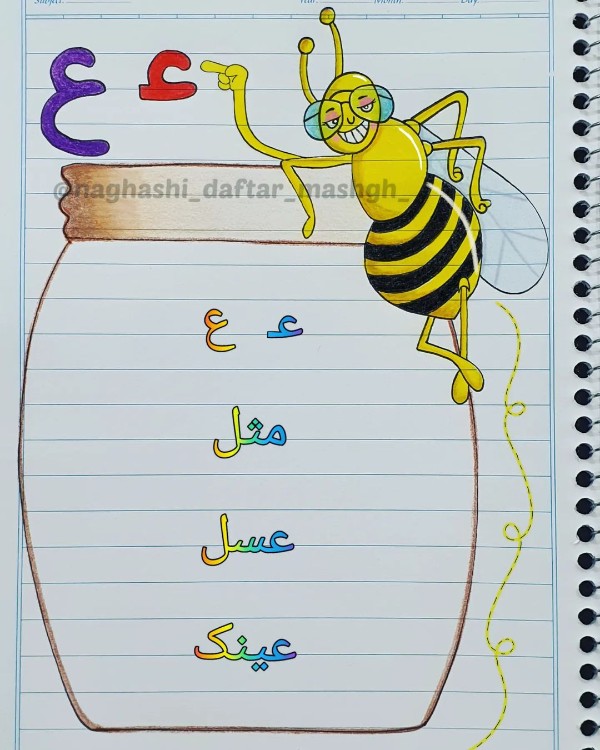 Subject: Year: Month: Day:
عـ ع
@naghashi_daftar_mashgh_
عـ ع
مثل
عسل
عینک